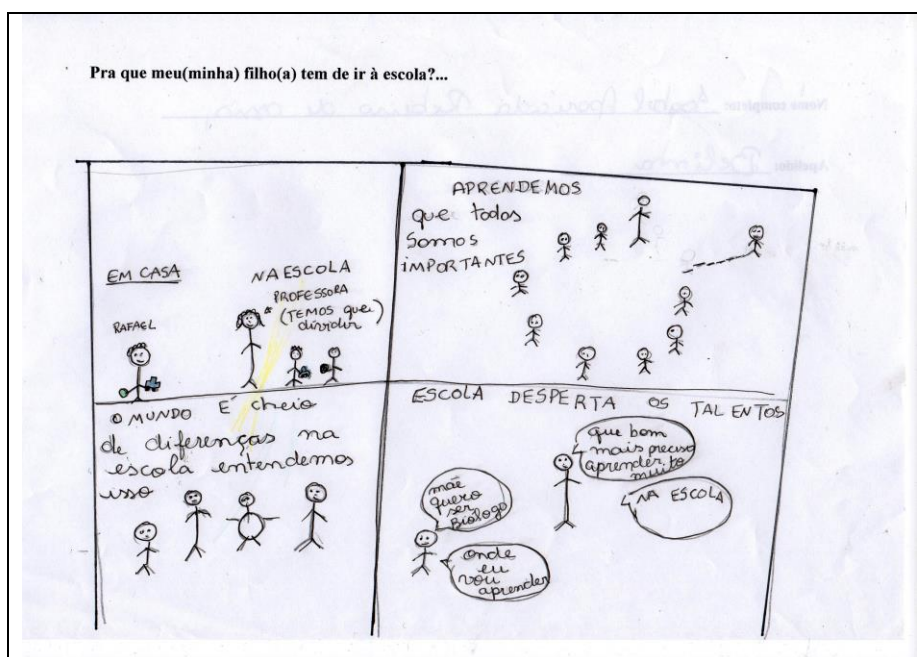 Pra que meu(minha) filho(a) tem de ir à escola?...
Nome completo:
Apelido:
EM CASA
RAFAEL
NA ESCOLA
PROFESSORA
(TEMOS que
dividir)
APRENDEMOS
que todos
Somos
IMPORTANTES
O MUNDO É cheio
de diferenças na
escola entendemos
isso
ESCOLA DESPERTA OS TALENTOS
mãe
quero
ser
BIÓLOGO
onde
eu
vou
aprender
que bom
mais preciso
aprender muito
muito
NA ESCOLA